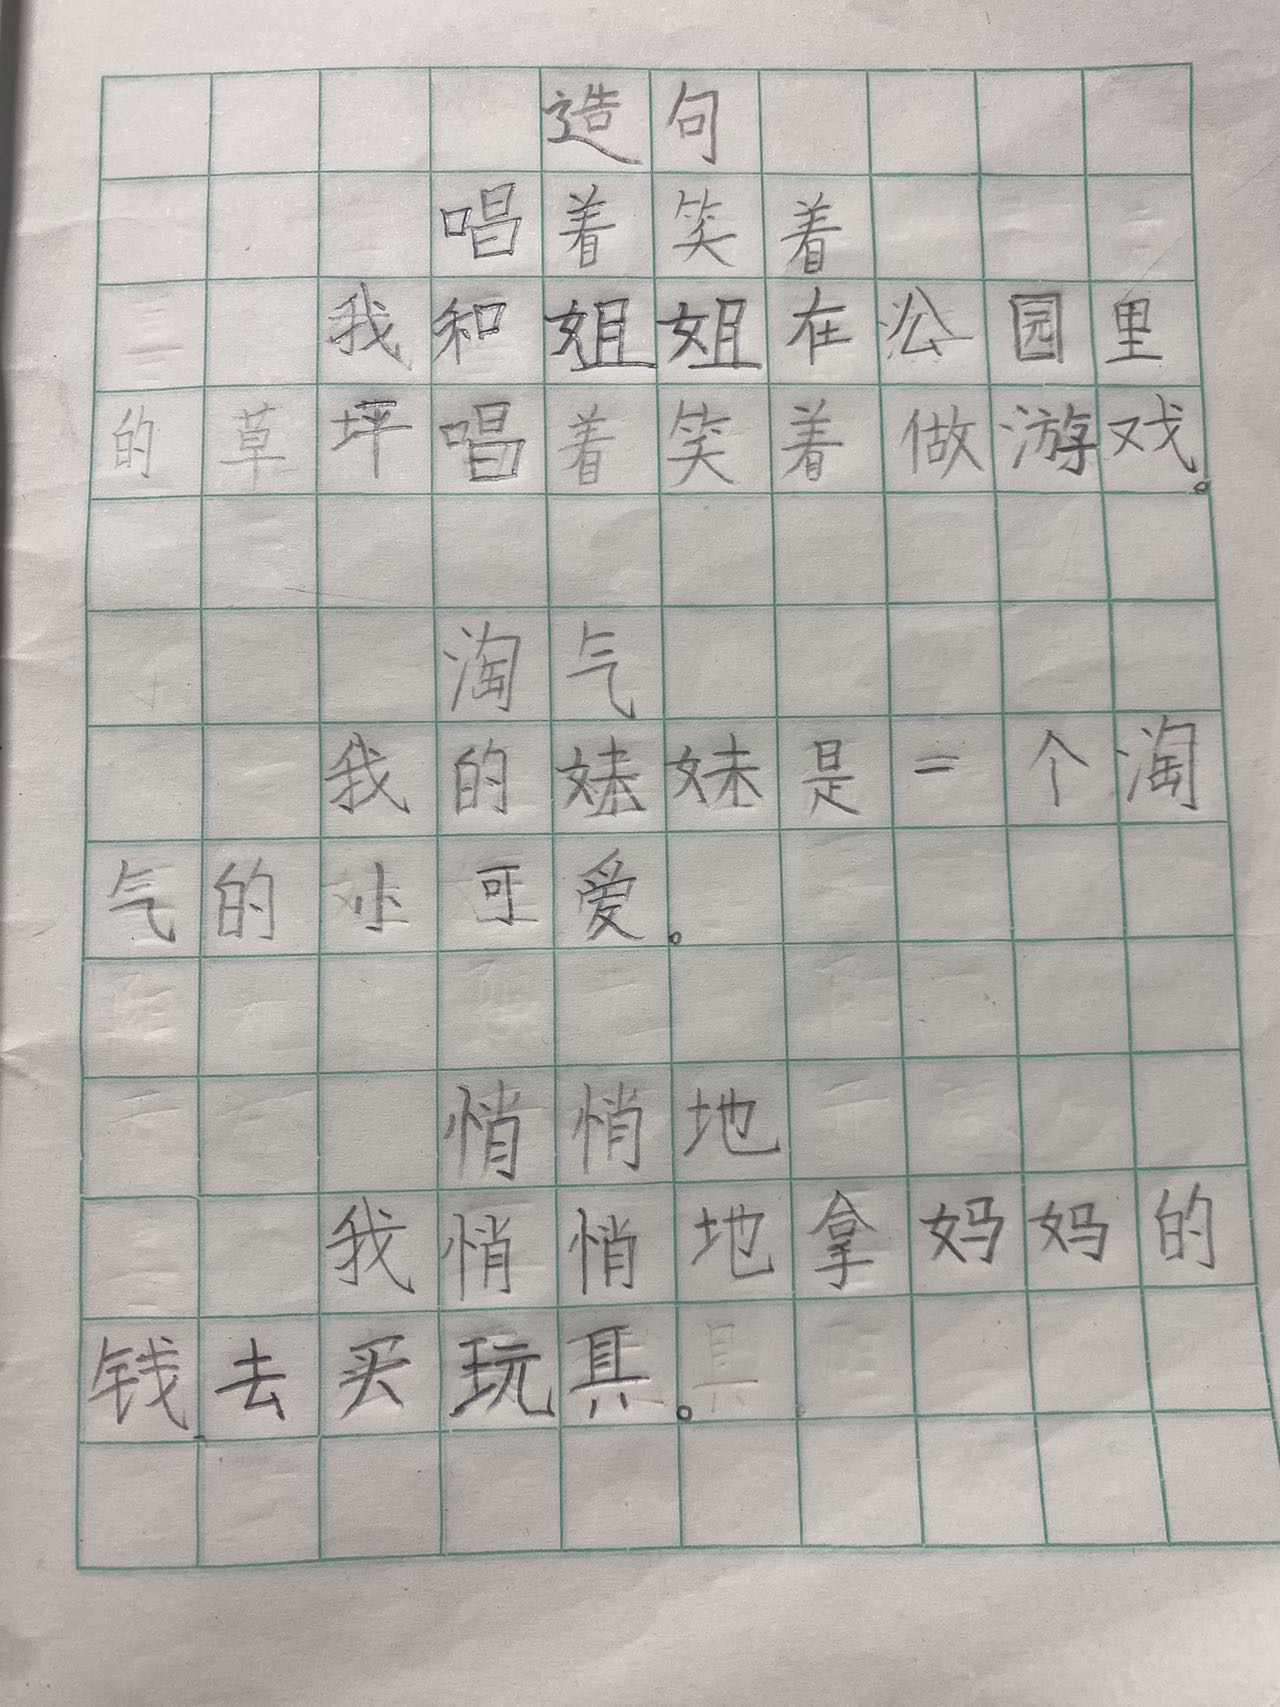 造句
唱着笑着
我和姐姐在公园里
的草坪唱着笑着做游戏。
淘气
我的妹妹是一个淘
气的小可爱。
悄悄地
我悄悄地拿妈妈的
钱去买玩具。